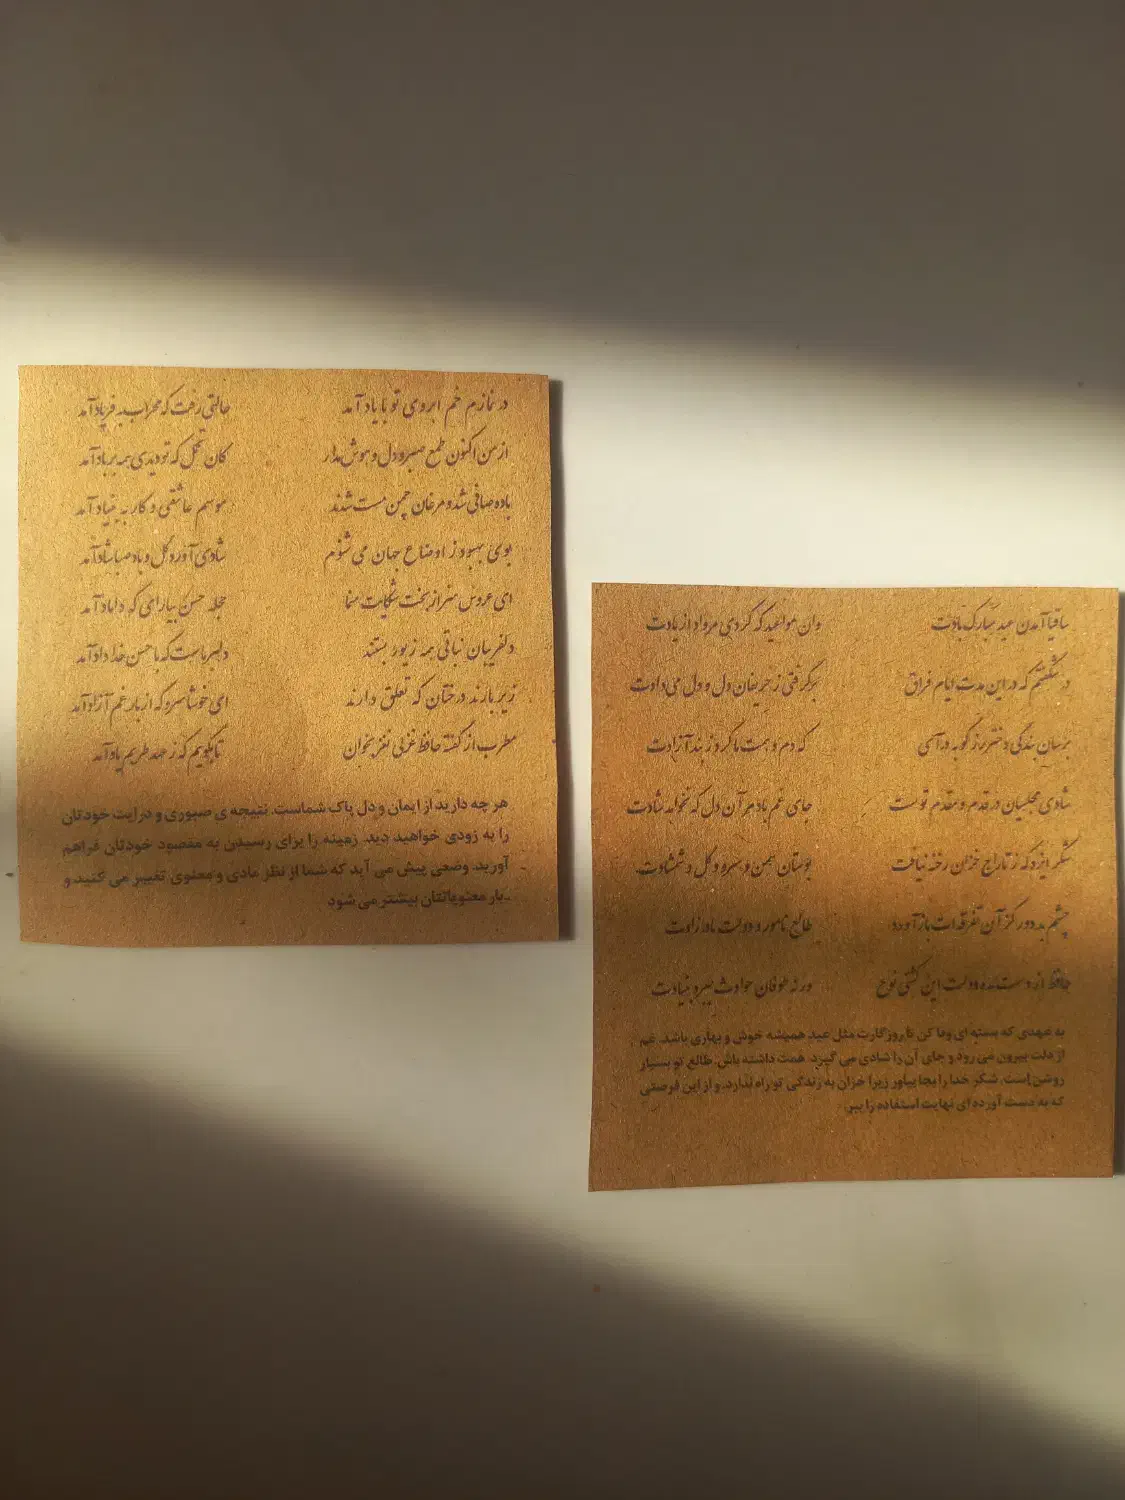 در نمازم خم ابروی تو با یاد آمد حالتی رفت که محراب به فریاد آمد
از من اکنون طمع صبر و دل و هوش مدار کان تحمل که تو دیدی همه بر باد آمد
باده صافی شد و مرغان چمن مست شدند موسم عاشقی و کار به بنیاد آمد
بوی بهبود ز اوضاع جهان می شنوم شادی آورد گل و باد صبا شاد آمد
ای عروس هنر از بخت شکایت منما حجله حسن بیارای که داماد آمد
دلفریبان نباتی همه زیور بستند دلبر ماست که با حسن خداداد آمد
زیر بارند درختان که تعلق دارند ای خوشا سرو که از بار غم آزاد آمد
مطرب از گفته حافظ غزلی نغز بخوان تا بگویم که ز عهد طربم یاد آمد
هر چه دارید از ایمان و دل پاک شماست. نتیجه ی صبوری و درایت خودتان
را به زودی خواهید دید. زمینه را برای رسیدن به مقصود خودتان فراهم
آورید. وضعی پیش می آید که شما از نظر مادی و معنوی تغییر می کنید و
بار معنویاتتان بیشتر می شود..
ساقیا آمدن عید مبارک بادت وان مواعید که کردی مرواد از یادت
در شگفتم که در این مدت ایام فراق برگرفتی ز حریفان دل و دل می دادت
برسان بندگی دختر رز گو به درآی که دم و همت ما کرد ز بند آزادت
شادی مجلسیان در قدم و مقدم توست جای غم باد مر آن دل که نخواهد شادت
شکر ایزد که ز تاراج خزان رخنه نیافت بوستان سمن و سرو و گل و شمشادت
چشم بد دور کز آن تفرقه ات بازآورد طالع نامور و دولت مادرزادت
حافظ از دست مده دولت این کشتی نوح ورنه طوفان حوادث ببرد بنیادت
به عهدی که بسته ای وفا کن تا روزگارت مثل عید همیشه خوش و بهاری باشد. غم
از دلت بیرون می رود و جای آن را شادی می گیرد. همت داشته باش. طالع تو بسیار
روشن است. شکر خدا را بجا بیاور زیرا خزان به زندگی تو راه ندارد. و از این فرصتی
که به دست آورده ای نهایت استفاده را ببر.